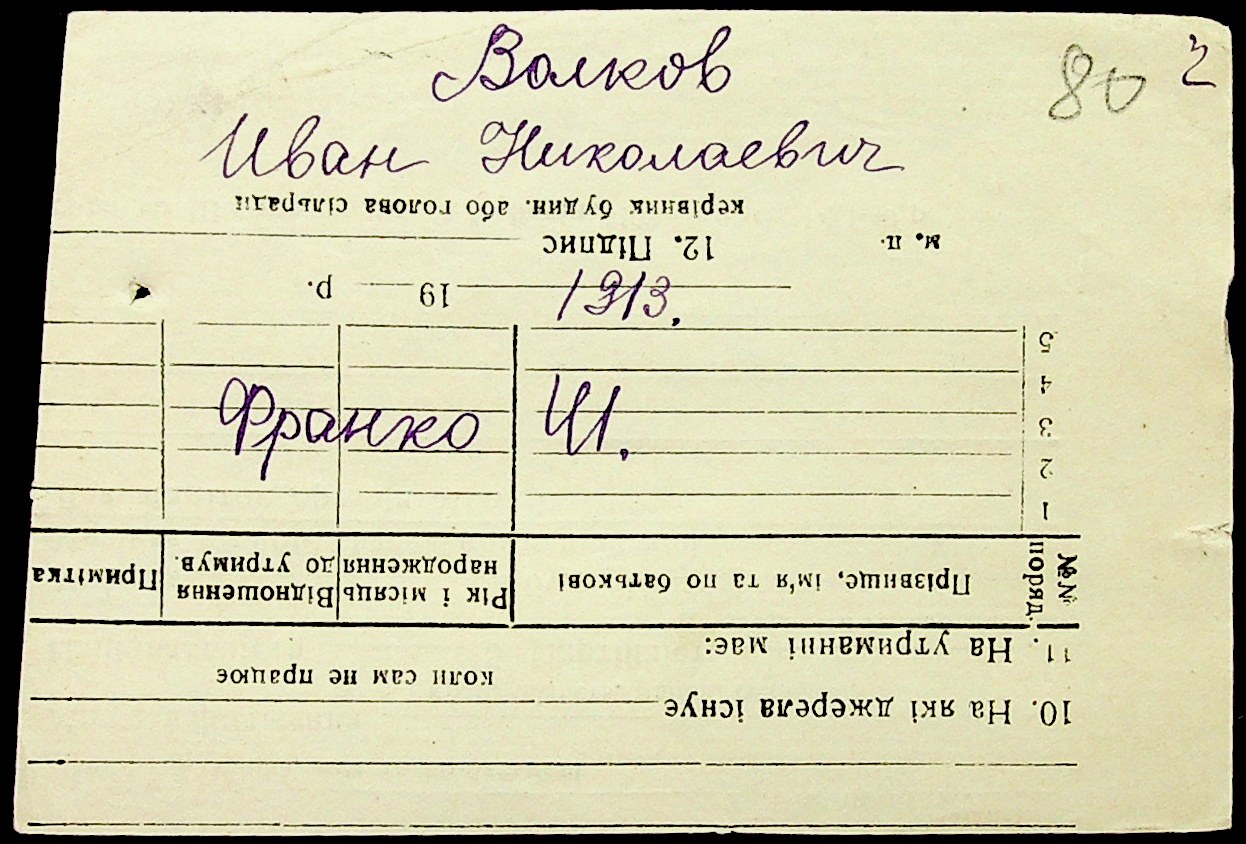 80
Волков
Иван Николаевич
1913.
Франко
10. На які джерела існує
коли сам не працює
11. На утриманні має:
№№ поряд.
Прізвище, ім'я та по батькові
Рік і місяць народження
Відношення до утримув.
Примітка
1
2
3
4
5
19 р.
м. п. 12. Підпис
керівник будин. або голова сільради